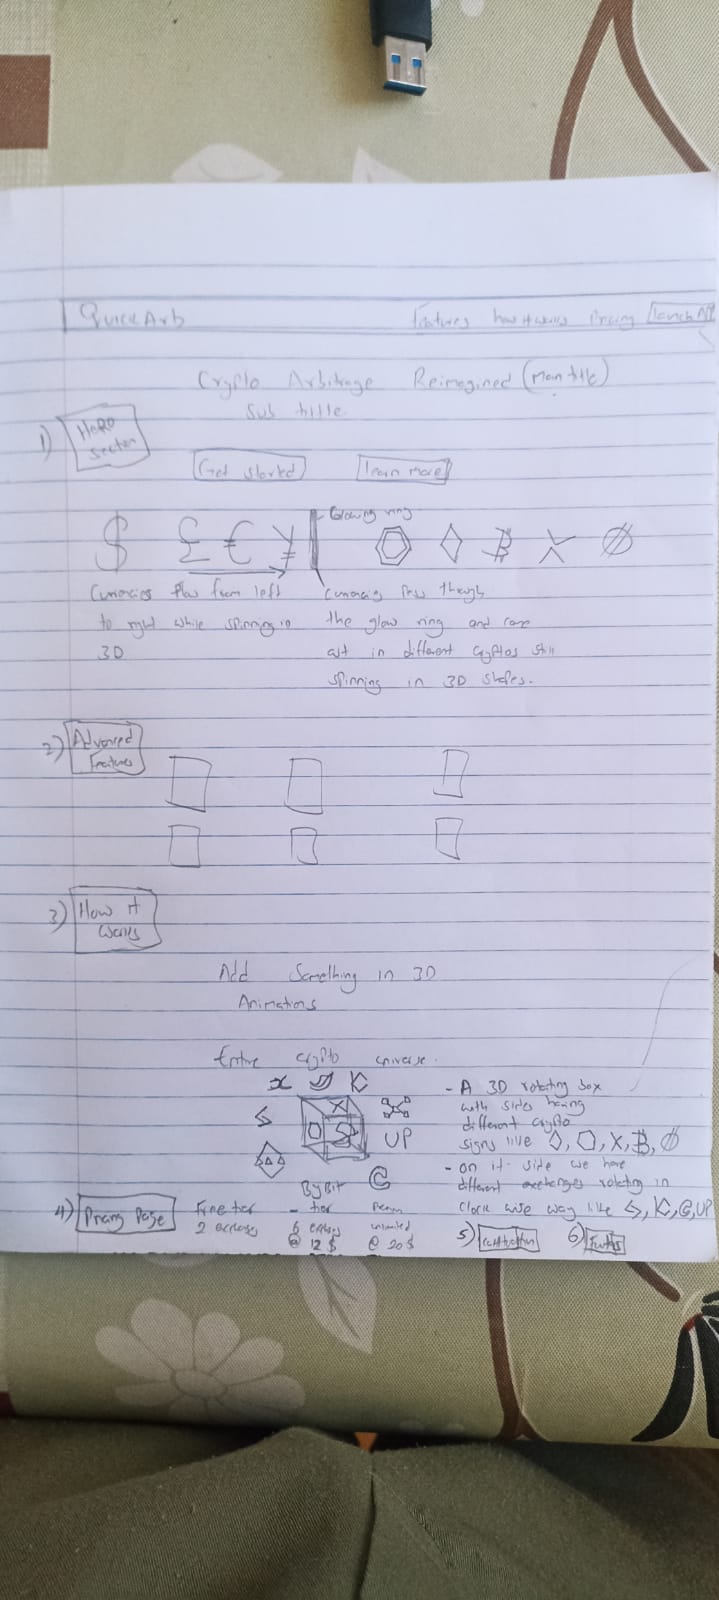 QuickArb Features how it works Pricing Launch
Crypto Arbitrage Reimagined (Main title)
Sub title
1) Hero
Section
Get started Learn more
Glowing ring
$ £ € ¥ ₿
Currencies flow from left
to right while spinning in
3D
Currencies pass through
the glow ring and come
out in different cryptos still
spinning in 3D shapes.
2) Advanced
Features
3) How it
works
Add Something in 3D
Animations
Entire crypto universe.
- A 3D rotating box
with sides having
different crypto
signs like X, ₿
- on it side we have
different exchanges rotating in
clock wise way like
UP
X
ByBit
4) Pricing Page
tier
2
- tier
6
@ 12 $
unlimited
@ 20 $
5)
6)